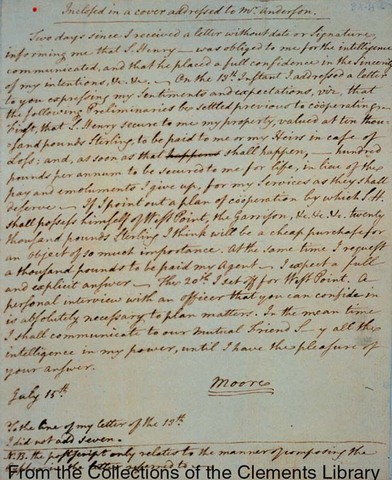 Inclosed in a cover addressed to Mr. Anderson.
Two days since I received a letter without date or Signature,
informing me that S. Henry — was obliged to me for the intelligence
communicated, and that he placed a full confidence in the Sincerity
of my intentions, &c. &c. — On the 13th Instant I addressed a letter
to you expressing my Sentiments and expectations, viz, that
the following Preliminaries be settled previous to coöperating.
first, that S. Henry secure to me my property, valued at ten thou-
sand pounds Sterling, to be paid to me or my Heirs in case of
Loss; and, as soon as that happens shall happen, — hundred
pounds per annum to be secured to me for life, in lieu of the
pay and emoluments I give up, for my Services as they shall
deserve — If I point out a plan of coöperation by which S. H.
shall possess himself of West Point, the Garrison, &c. &c. &c. twenty
thousand pounds Sterling I think will be a cheap purchase for
an object of so much importance. At the same time I request
a thousand pounds to be paid my Agent — I expect a full
and explicit answer — The 20th I set off for West Point. A
personal interview with an officer that you can confide in
is absolutely necessary to plan matters. In the mean time
I shall communicate to our mutual Friend S—y all the
intelligence in my power, until I have the pleasure of
your answer.
Moore
July 15th
To the line of my letter of the 13th
I did not add seven.
N.B. the postscript only relates to the manner of composing the
From the Collections of the Clements Library